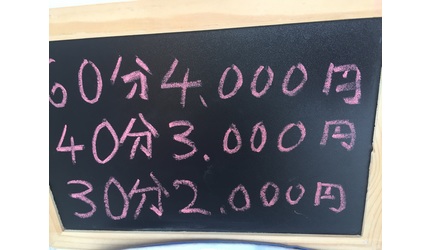 60分4.000円
40分3.000円
30分2.000円